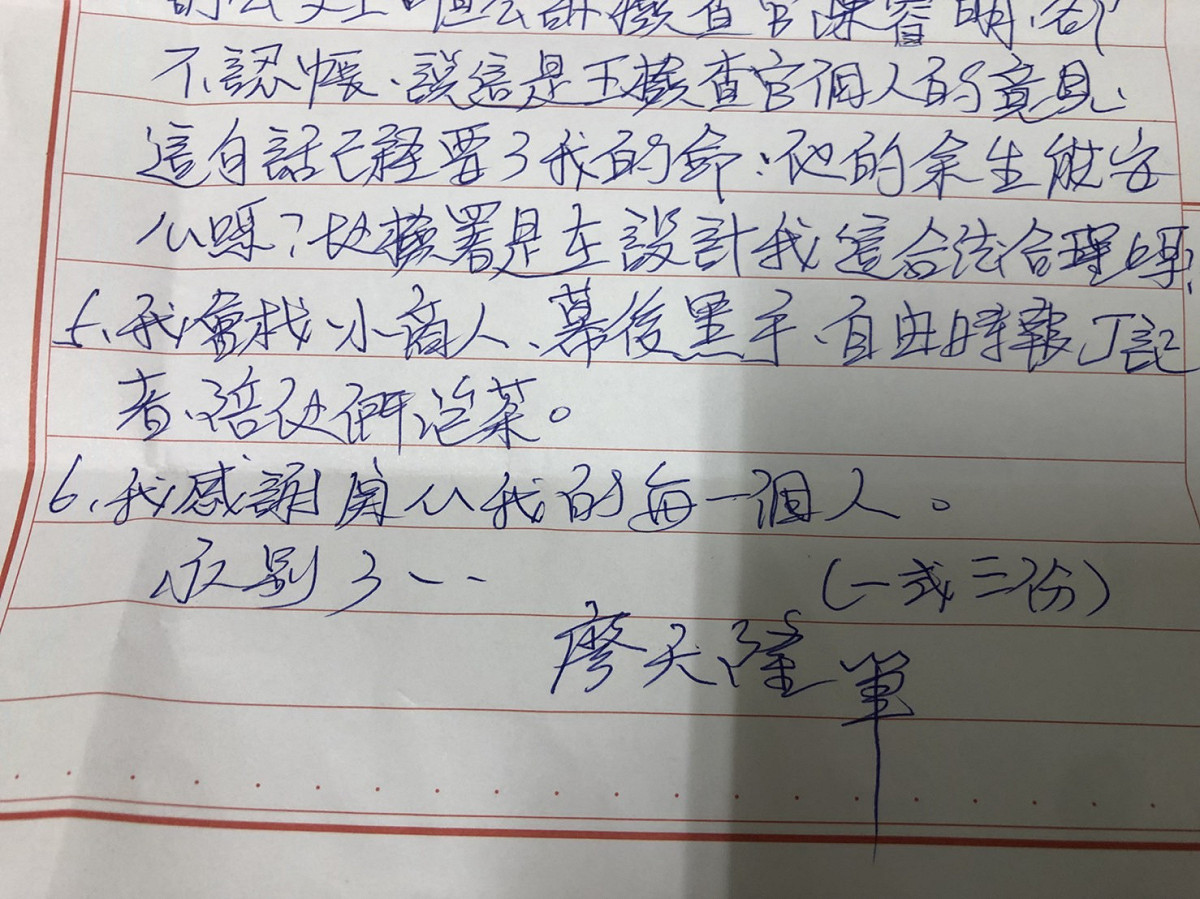 的公文上的但公訴檢查官陳睿明、卻
不認帳、說這是王檢查官個人的意見、
這句話已経要了我的命；他的余生能安
心嗎？地檢署是在設計我這合法合理嗎？
5、我會找小商人、幕後黑手、自由時報丁記
者、陪他們泡茶。
6、我感謝関心我的每一個人。
永別了、、
(一式三份)
廖天隆筆